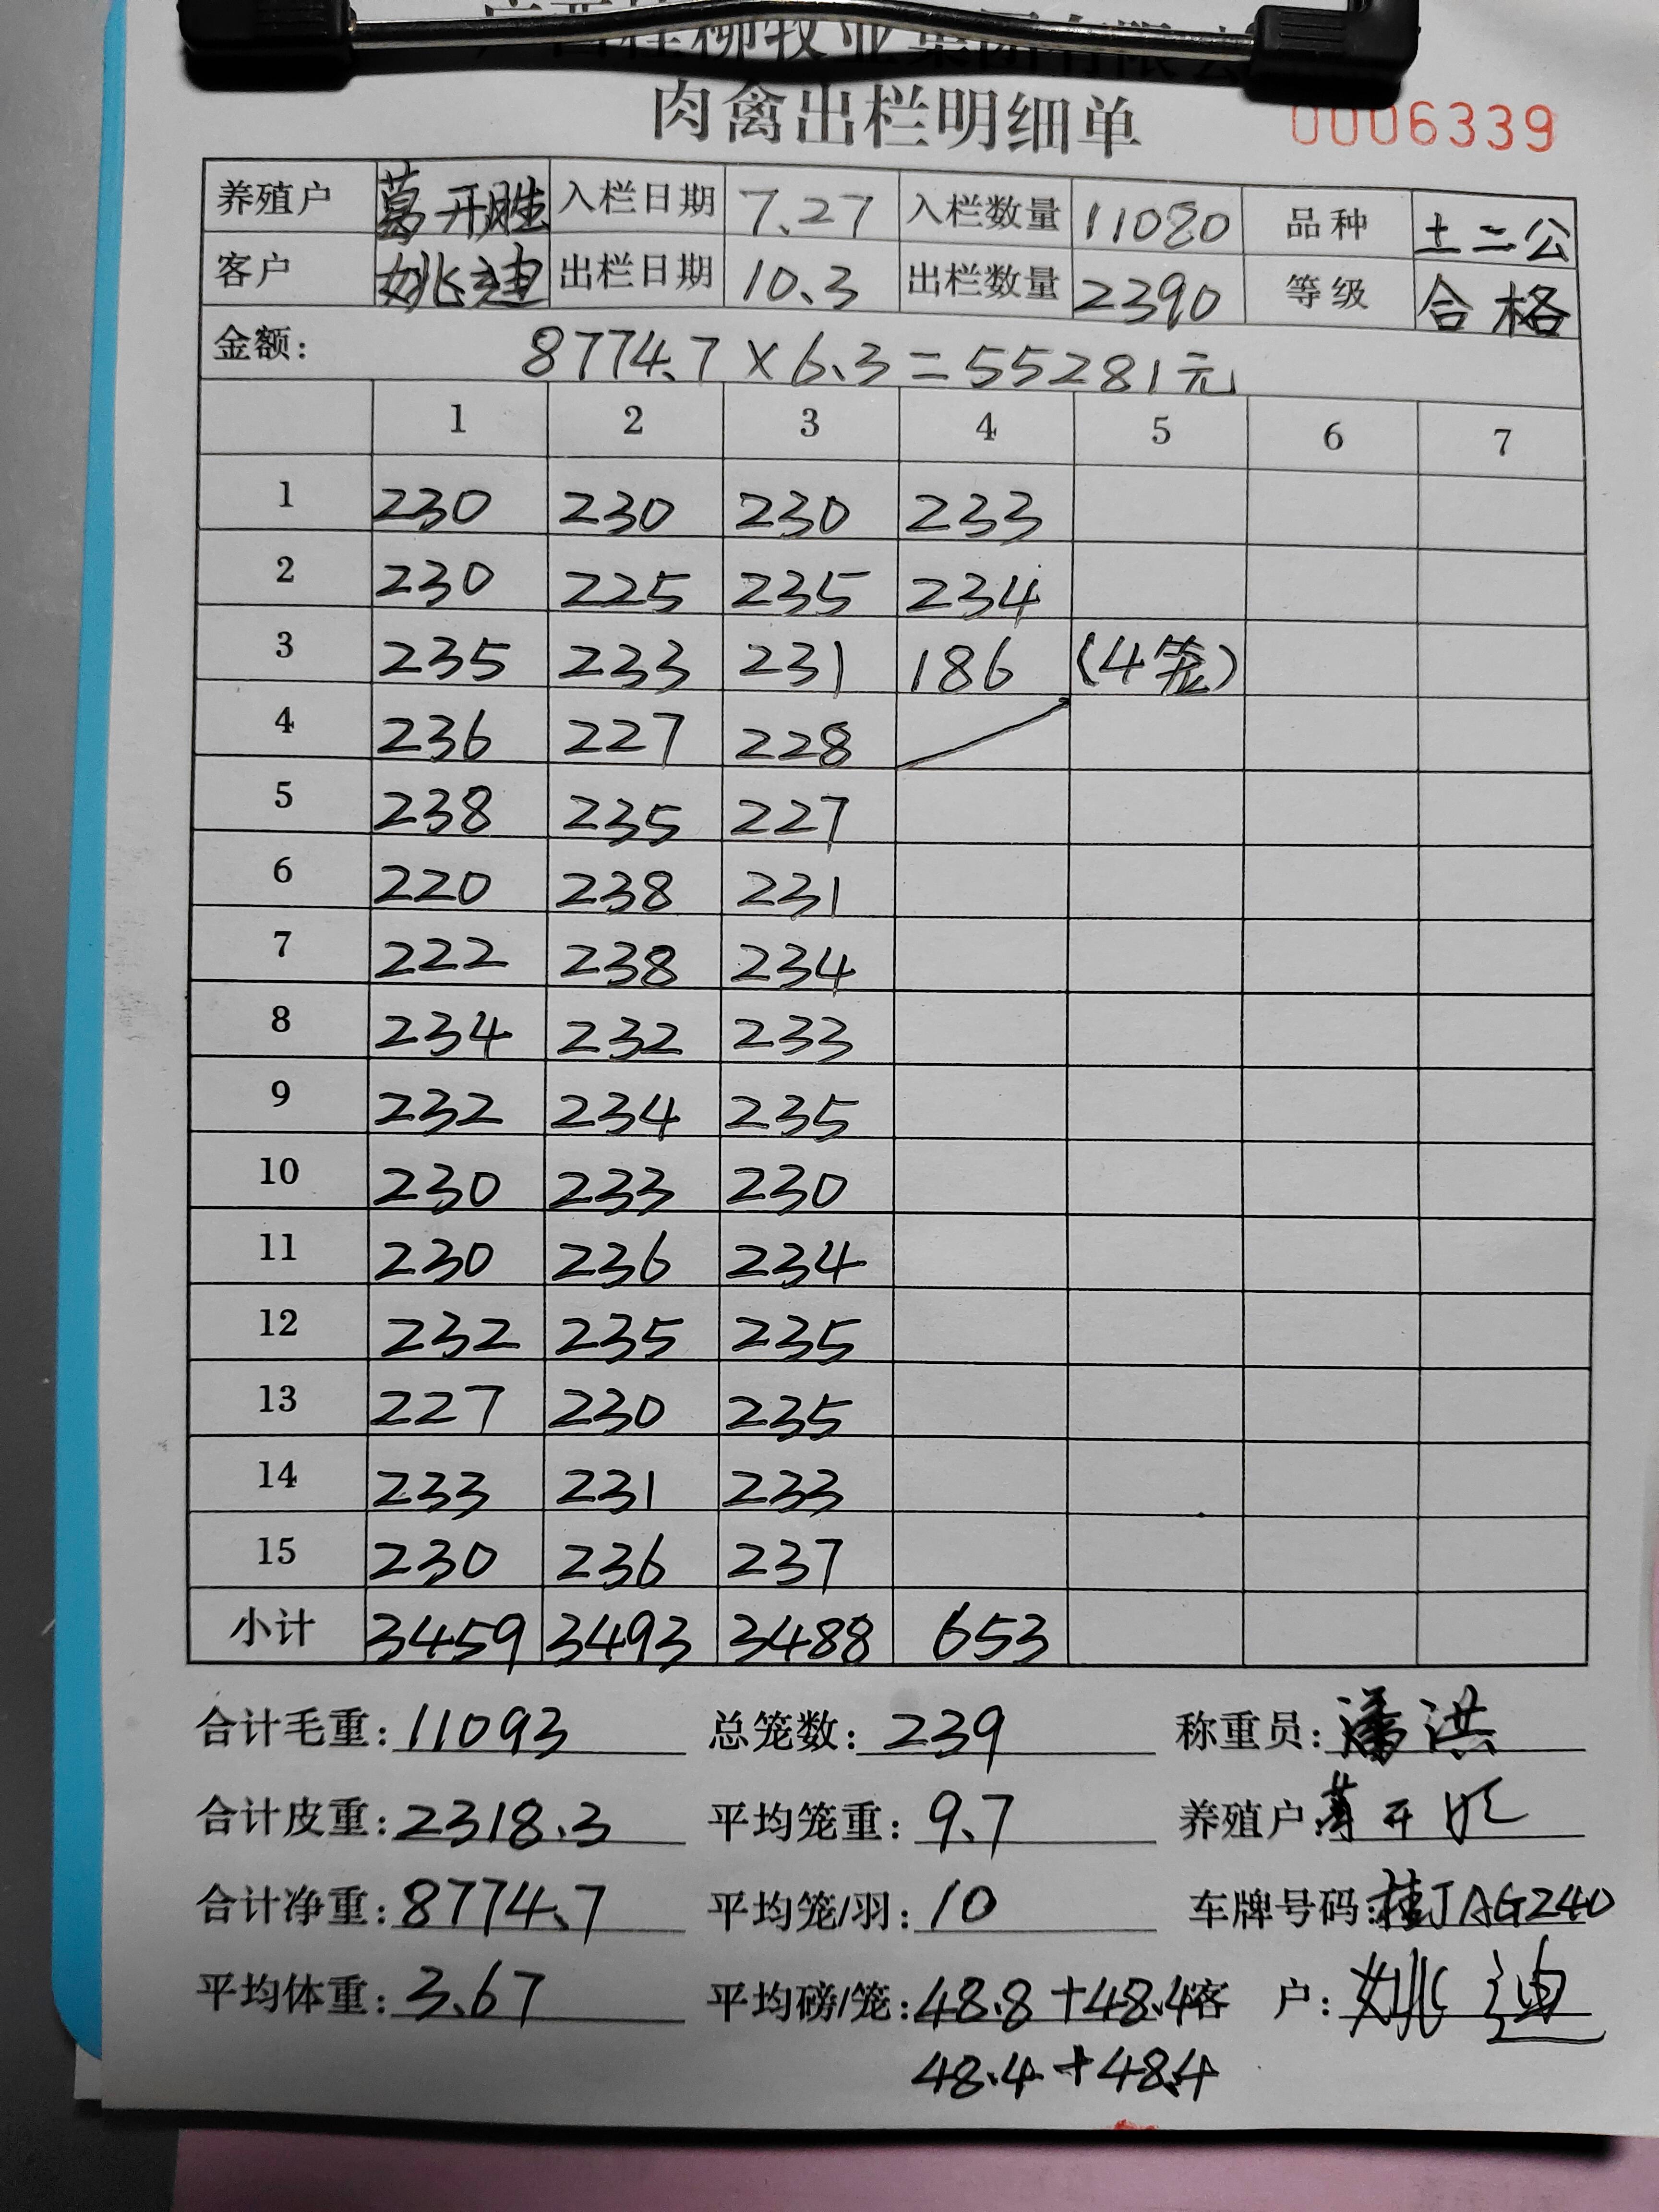 肉禽出栏明细单 0006339
养殖户 葛开胜 入栏日期 7.27 入栏数量 11080 品种 土二公
客户 姚迪 出栏日期 10.3 出栏数量 2390 等级 合格
金额: 8774.7×6.3=55281元
1 2 3 4 5 6 7
1 230 230 230 233
2 230 225 235 234
3 235 233 231 186 (4笼)
4 236 227 228
5 238 235 227
6 220 238 231
7 222 238 234
8 234 232 233
9 232 234 235
10 230 233 230
11 230 236 234
12 232 235 235
13 227 230 235
14 233 231 233
15 230 236 237
小计 3459 3493 3488 653
合计毛重: 11093 总笼数: 239 称重员: 潘洪
合计皮重: 2318.3 平均笼重: 9.7 养殖户: 葛开胜
合计净重: 8774.7 平均笼/羽: 10 车牌号码: 桂JAG240
平均体重: 3.67 平均磅/笼: 48.8+48.4 客户: 姚迪
48.4+48.4